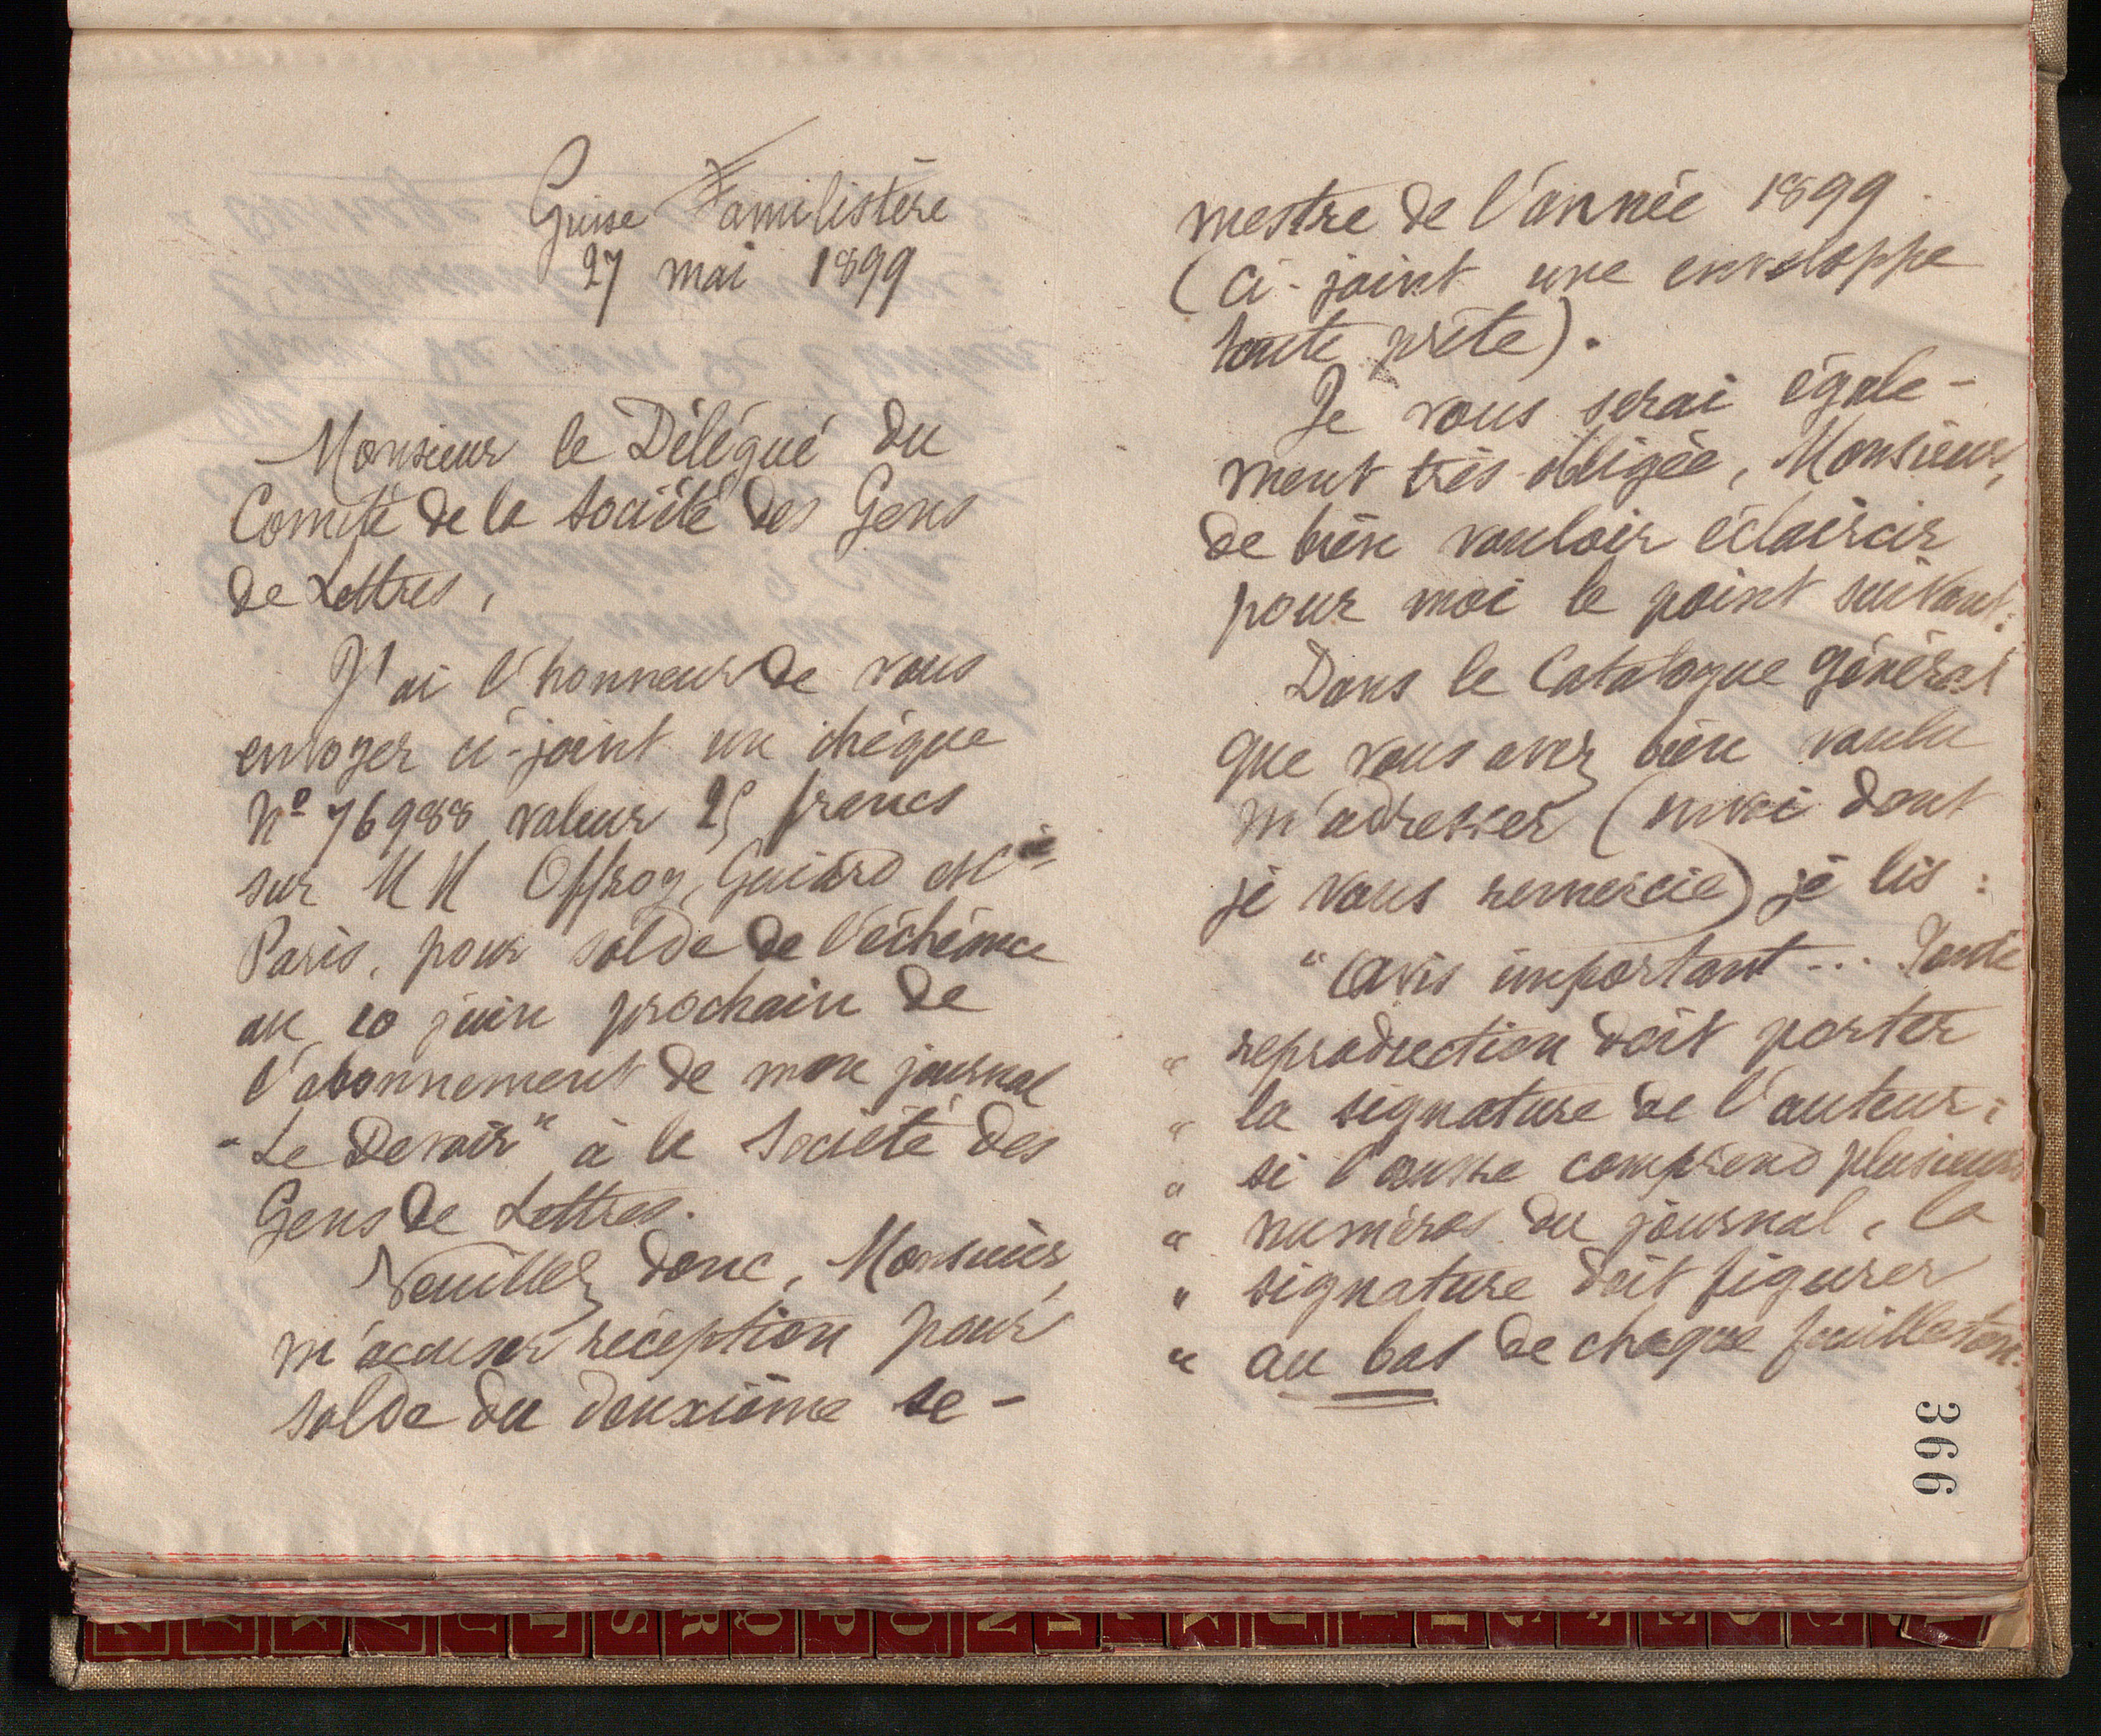 Guise Familistère
27 mai 1899
Monsieur le Délégué du
Comité de la Société des Gens
de Lettres,
J'ai l'honneur de vous
envoyer ci-joint un chèque
No 76988 valeur 25 francs
sur MM Offroy, Guiard et Cie
Paris, pour solde de l'échéance
au 10 juin prochain de
l'abonnement de mon journal
"Le Devoir" à la Société des
Gens de Lettres.
Veuillez donc, Monsieur,
m'accuser réception pour
solde du deuxième se-
mestre de l'année 1899
(ci-joint une enveloppe
toute prête).
Je vous serai égale-
ment très obligée, Monsieur,
de bien vouloir éclaircir
pour moi le point suivant:
Dans le Catalogue général
que vous avez bien voulu
m'adresser (envoi dont
je vous remercie) je lis :
"Avis important... Toute
" reproduction doit porter
" la signature de l'auteur;
" si l'œuvre comprend plusieurs
" numéros du journal, la
" signature doit figurer
" au bas de chaque feuilleton.
366
Z Y X V U T S R Q P O N M L K J I H G F E D C B